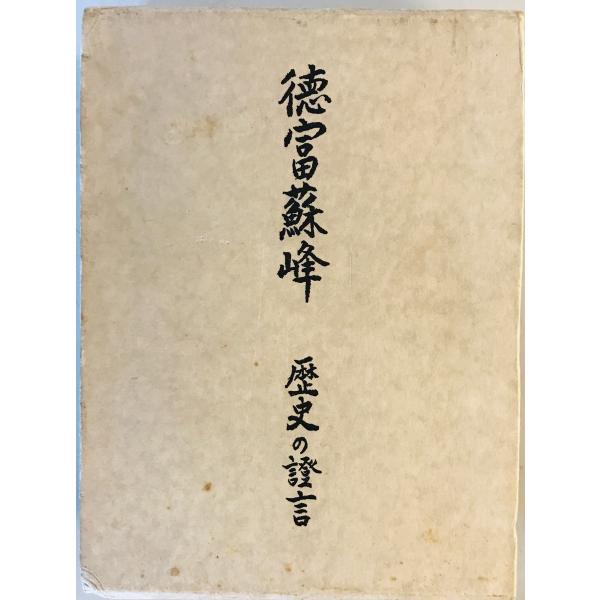 徳富蘇峰 歴史の證言